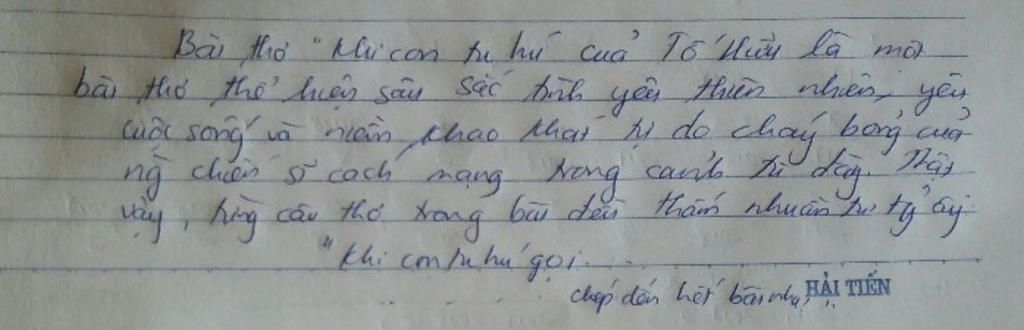 Bài thơ "Khi con tu hú" của Tố Hữu là một
bài thơ thể hiện sâu sắc tình yêu thiên nhiên, yêu
cuộc sống và niềm khao khát tự do cháy bỏng của
ng chiến sĩ cách mạng trong cảnh tù đày. Thật
vậy, từng câu thơ trong bài đều thấm nhuần tư tg ấy
"Khi con tu hú gọi...
chép đến hết bài nha
HẢI TIẾN